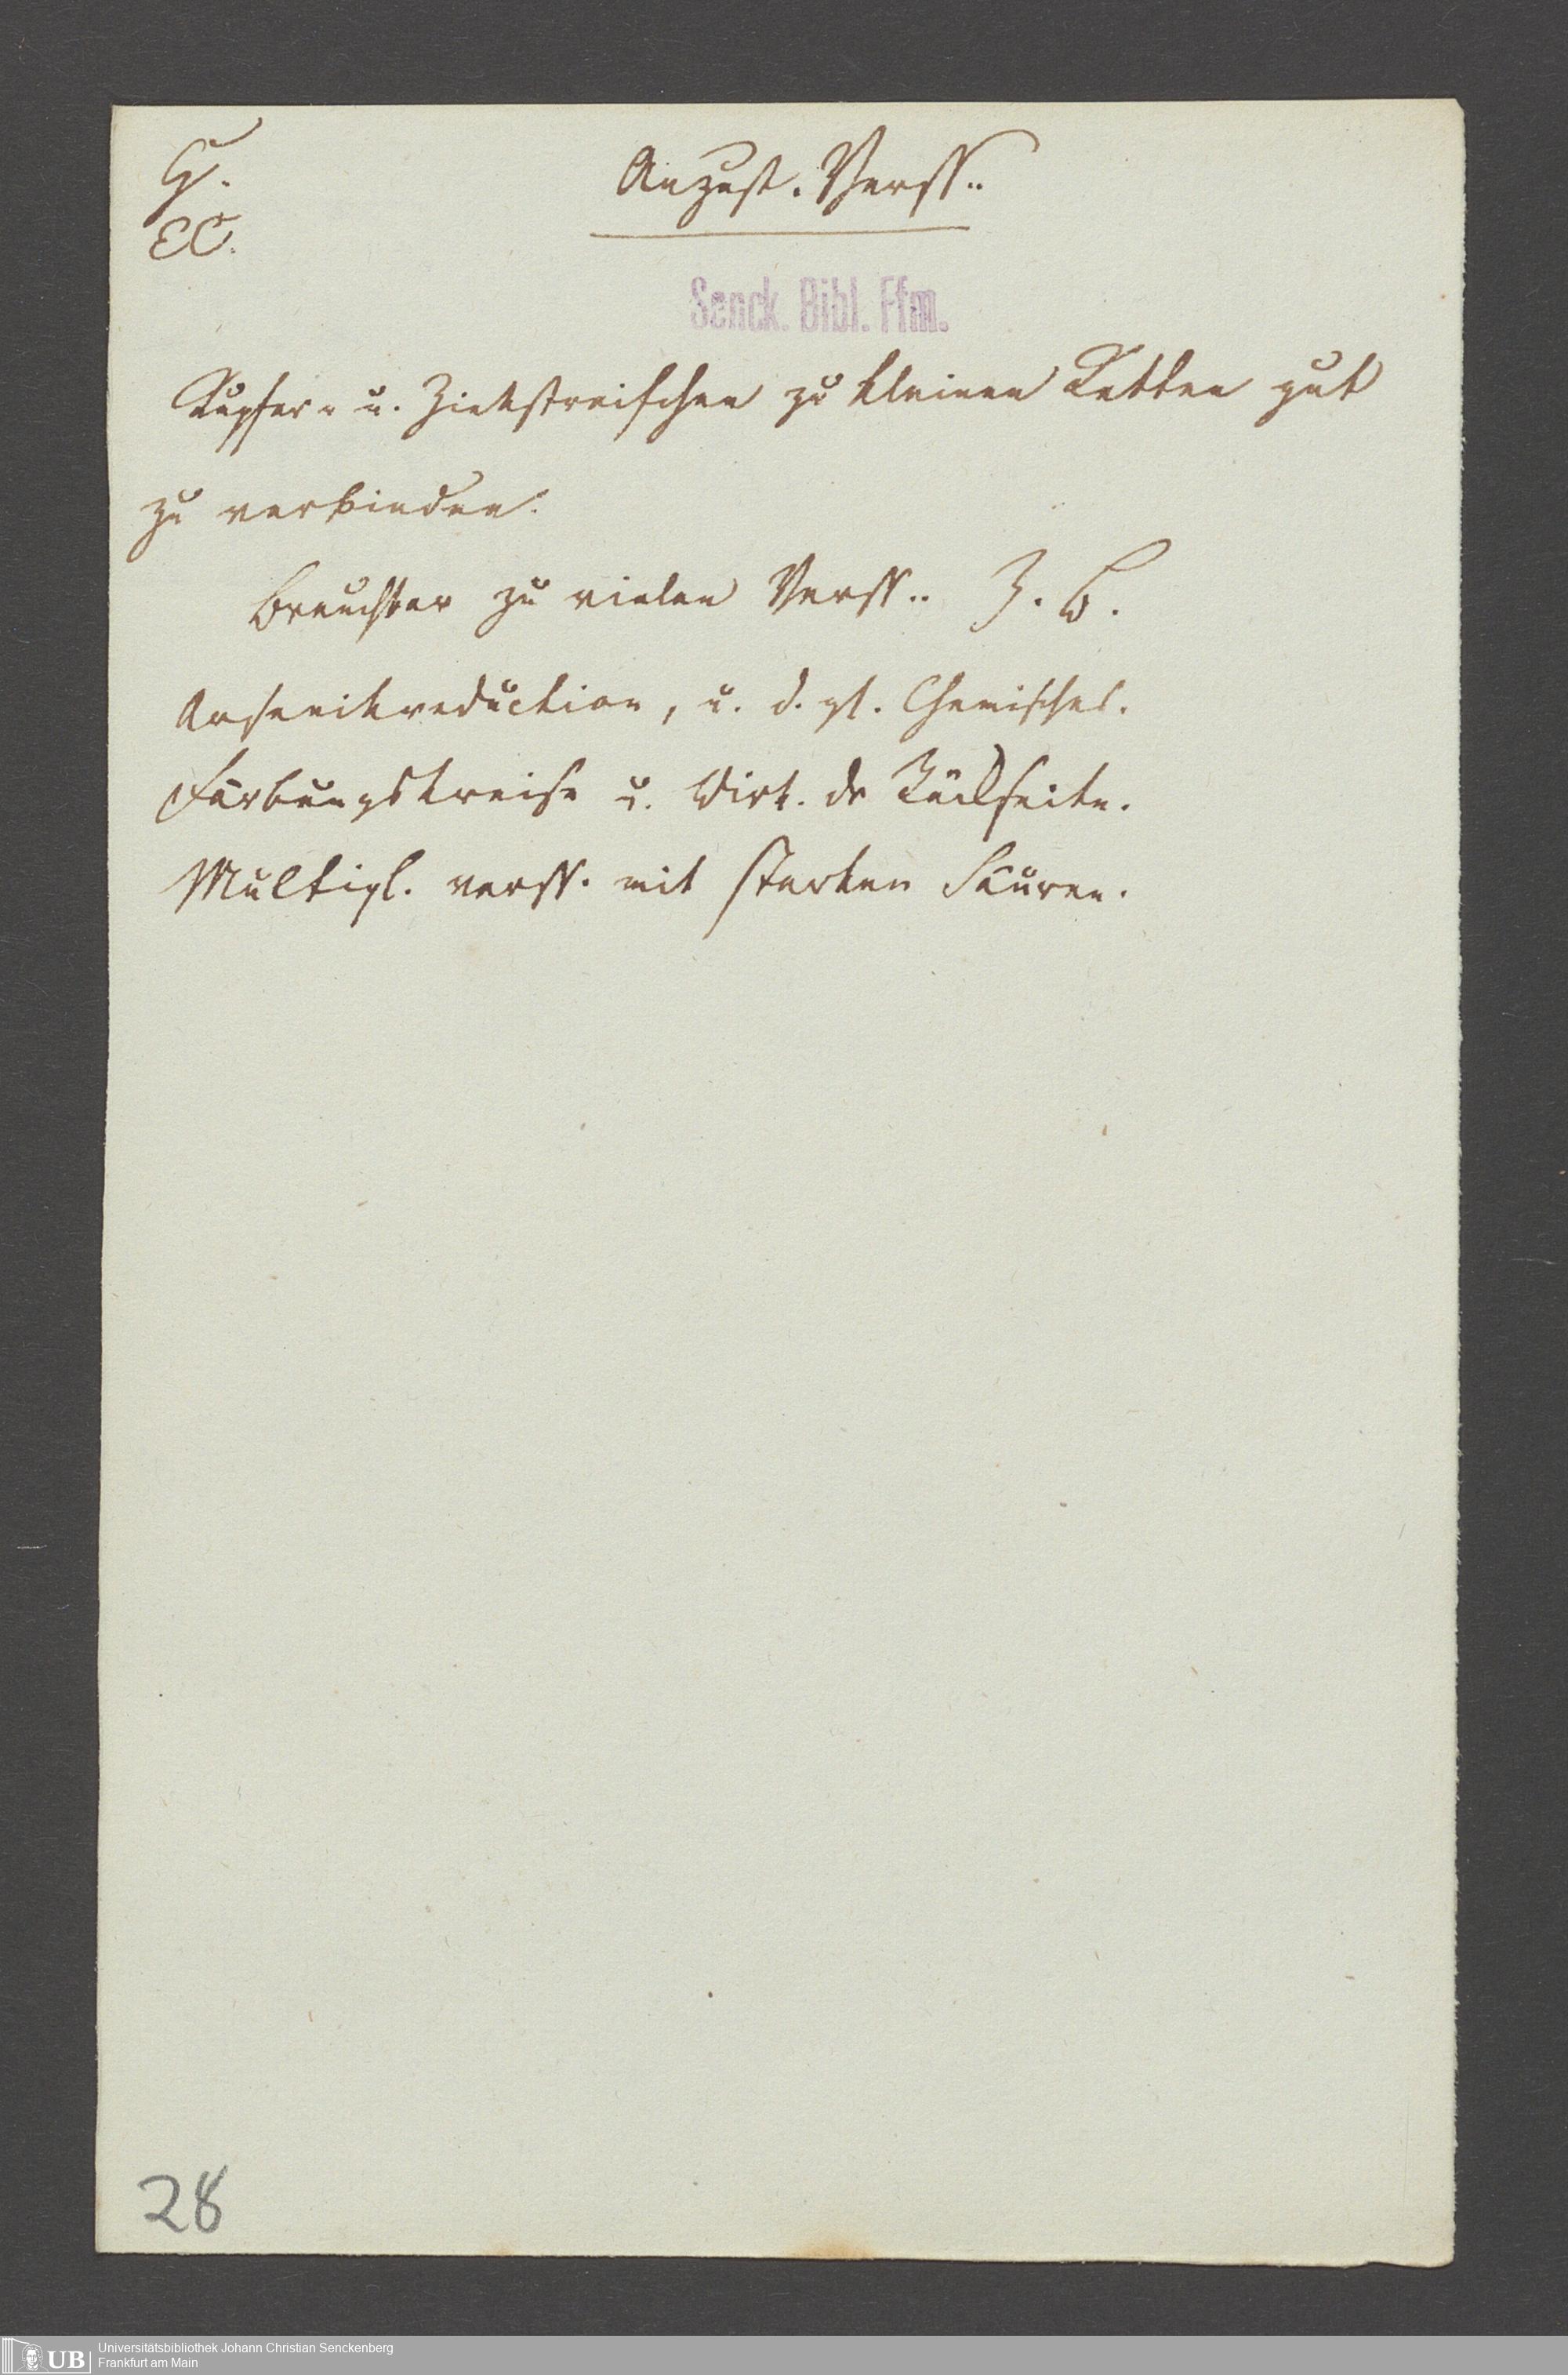 G.
EC.
Anzust. Verss..
Senck. Bibl. Ffm.
Kupfer- u. Zinkstreifchen zu kleinen Ketten gut
zu verbinden.
Brauchbar zu vielen Verss.. Z. B.
Arsenikreduction, u. d. gl. Chemisches.
Färbungskreise u. Wirk. dr Rückseite.
Multipl. verss. mit starken Säuren.
28
UB
Universitätsbibliothek Johann Christian Senckenberg
Frankfurt am Main